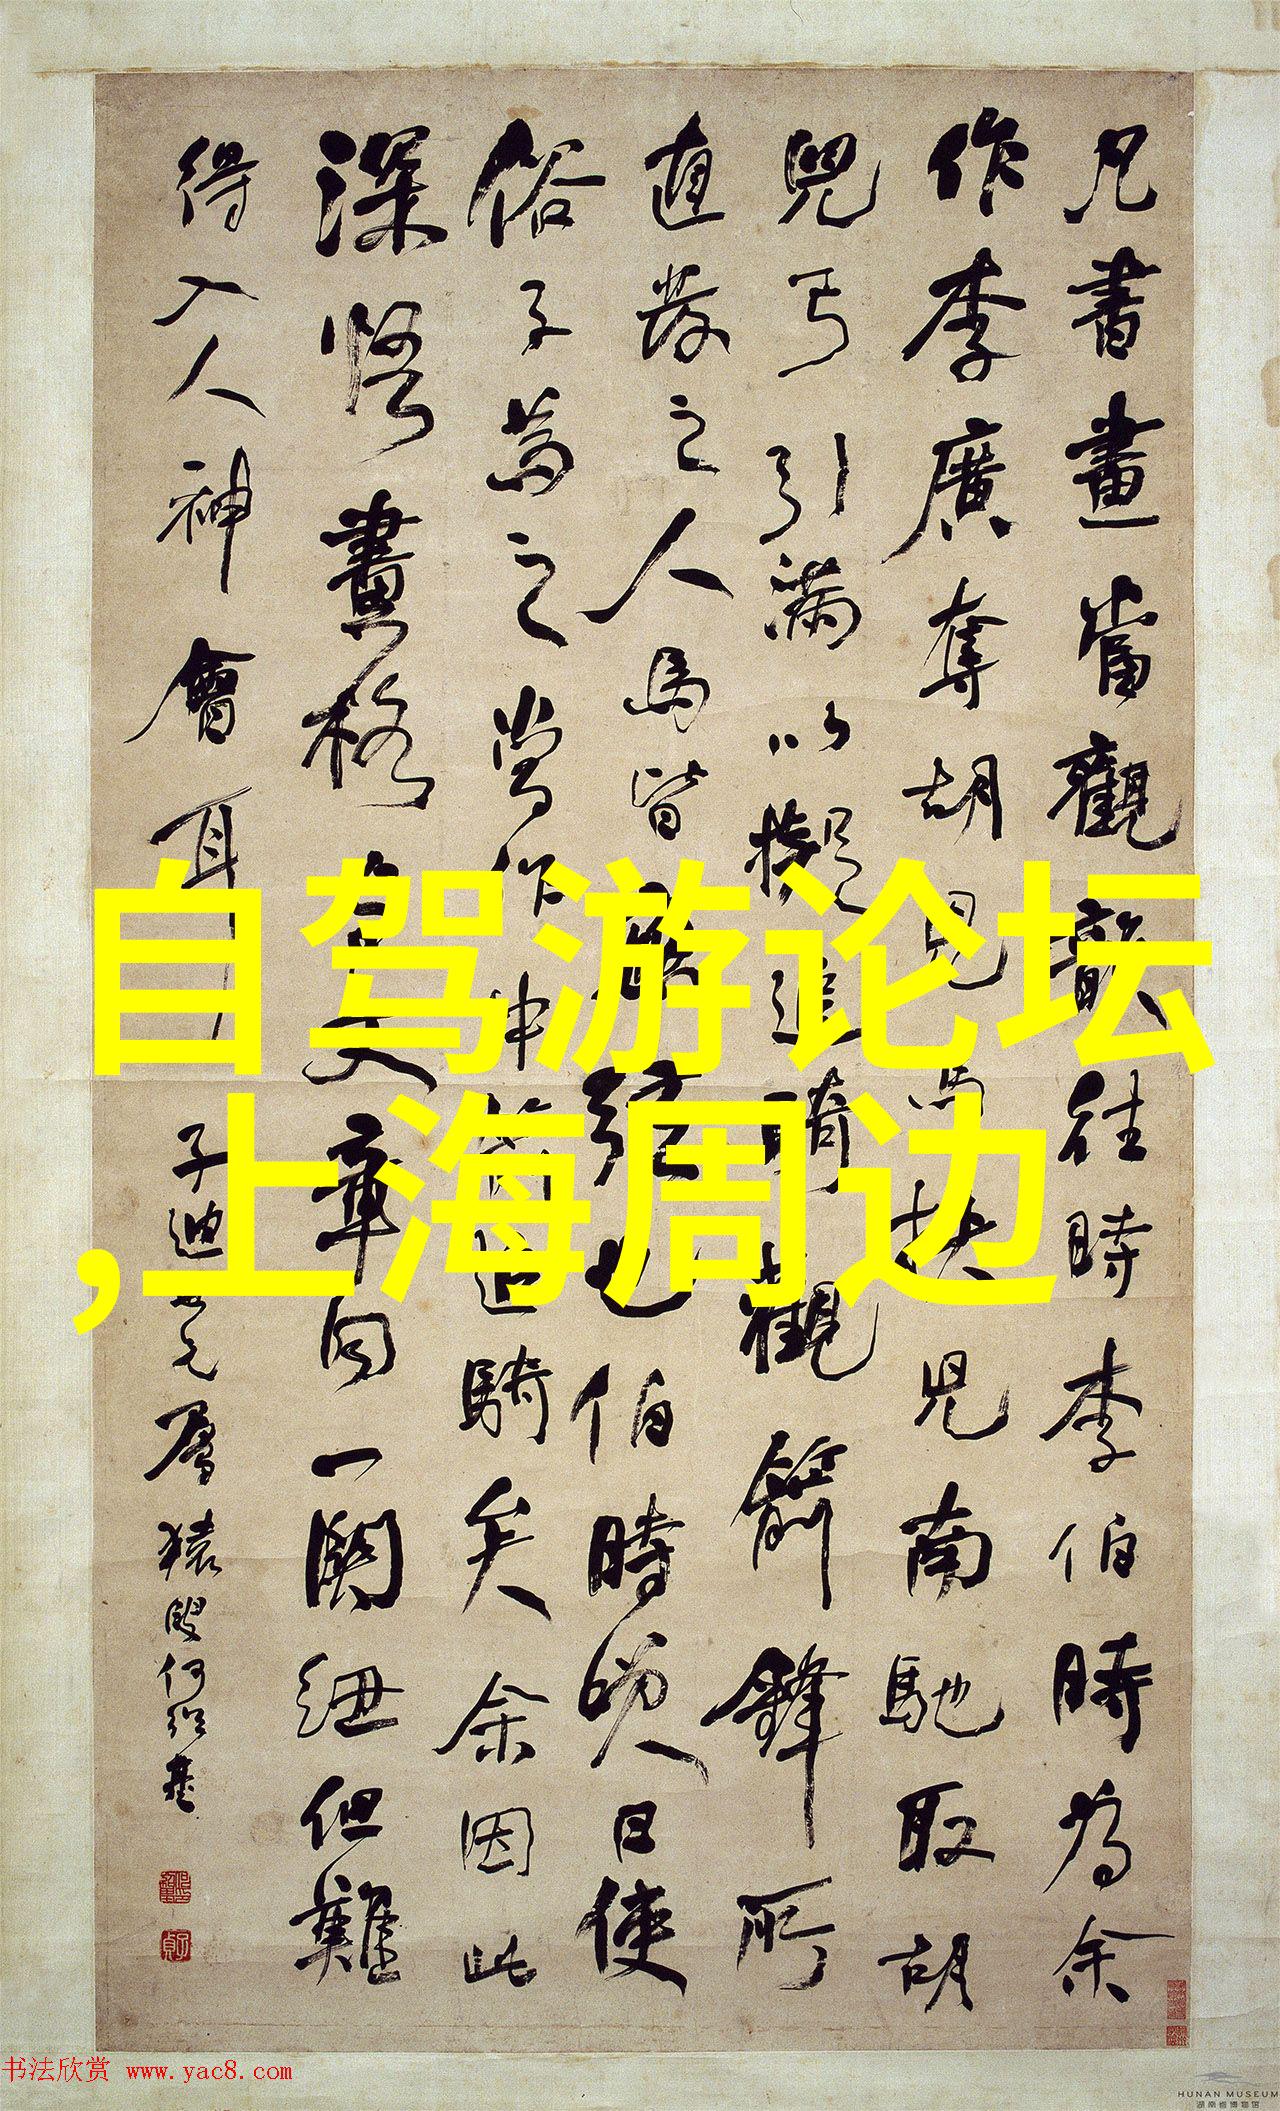 凡書畫當觀韻往時李伯時為余
作李廣奪胡兒馬挾兒南馳取胡
兒弓引滿以擬追騎觀箭鋒所
直發之人馬皆應弦也伯時笑曰使
俗子為之當作中箭追騎矣余因此
深悟畫格與文章同一關紐但難
得入人神會耳 子迪兄屬 猿叟何紹基
自驾游论坛
,上海周边
书法欣赏 www.yac8.com
HUNAN MUSEUM
湖南省博物馆